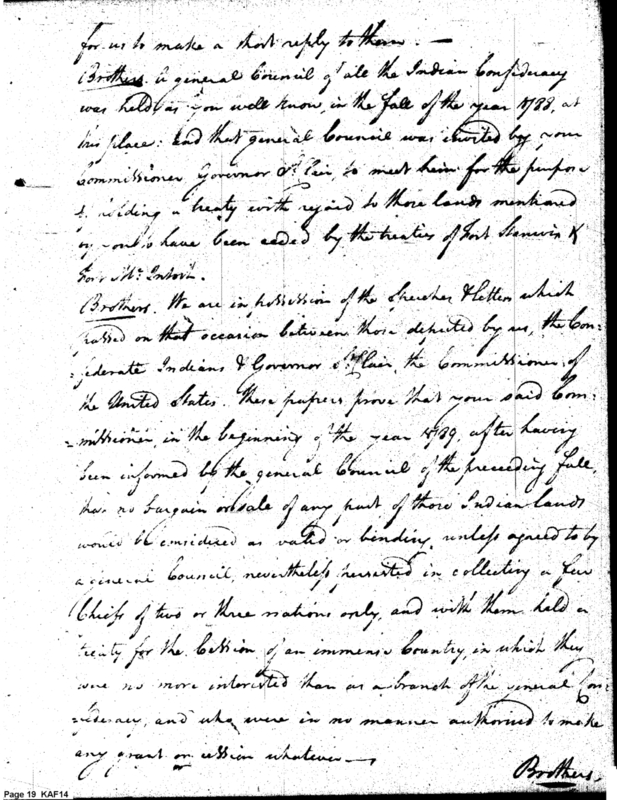 for us to make a short reply to them. —
Brothers. A general Council of all the Indian Confideracy
was held, as you well know, in the fall of the year 1788, at
this place: and that general Council was invited by your
Commissioner Governor St. Clair, to meet him for the purpose
of holding a treaty with regard to those lands mentioned
by you to have been ceded by the treaties of Fort Stanwix &
Fort Mc. Intosh.
Brothers. We are in possession of the Speeches & letters which
passed on that occasion between those deputed by us, the Con=
=federate Indians & Governor St. Clair, the Commissioner of
the United States. These papers prove that your said Com=
=missioner, in the beginning of the year 1789, after having
been informed by the general Council of the preceding fall,
that no bargain or sale of any part of those Indian lands
would be considered as valid or binding, unless agreed to by
a general Council, nevertheless persisted in collecting a few
Chiefs of two or three nations only, and with them held a
treaty for the Cession of an immense Country, in which they
were no more interested than as a branch of the general Con=
=federacy, and who were in no manner authorised to make
any grant or cession whatever —
Brothers.
Page 19 KAF14